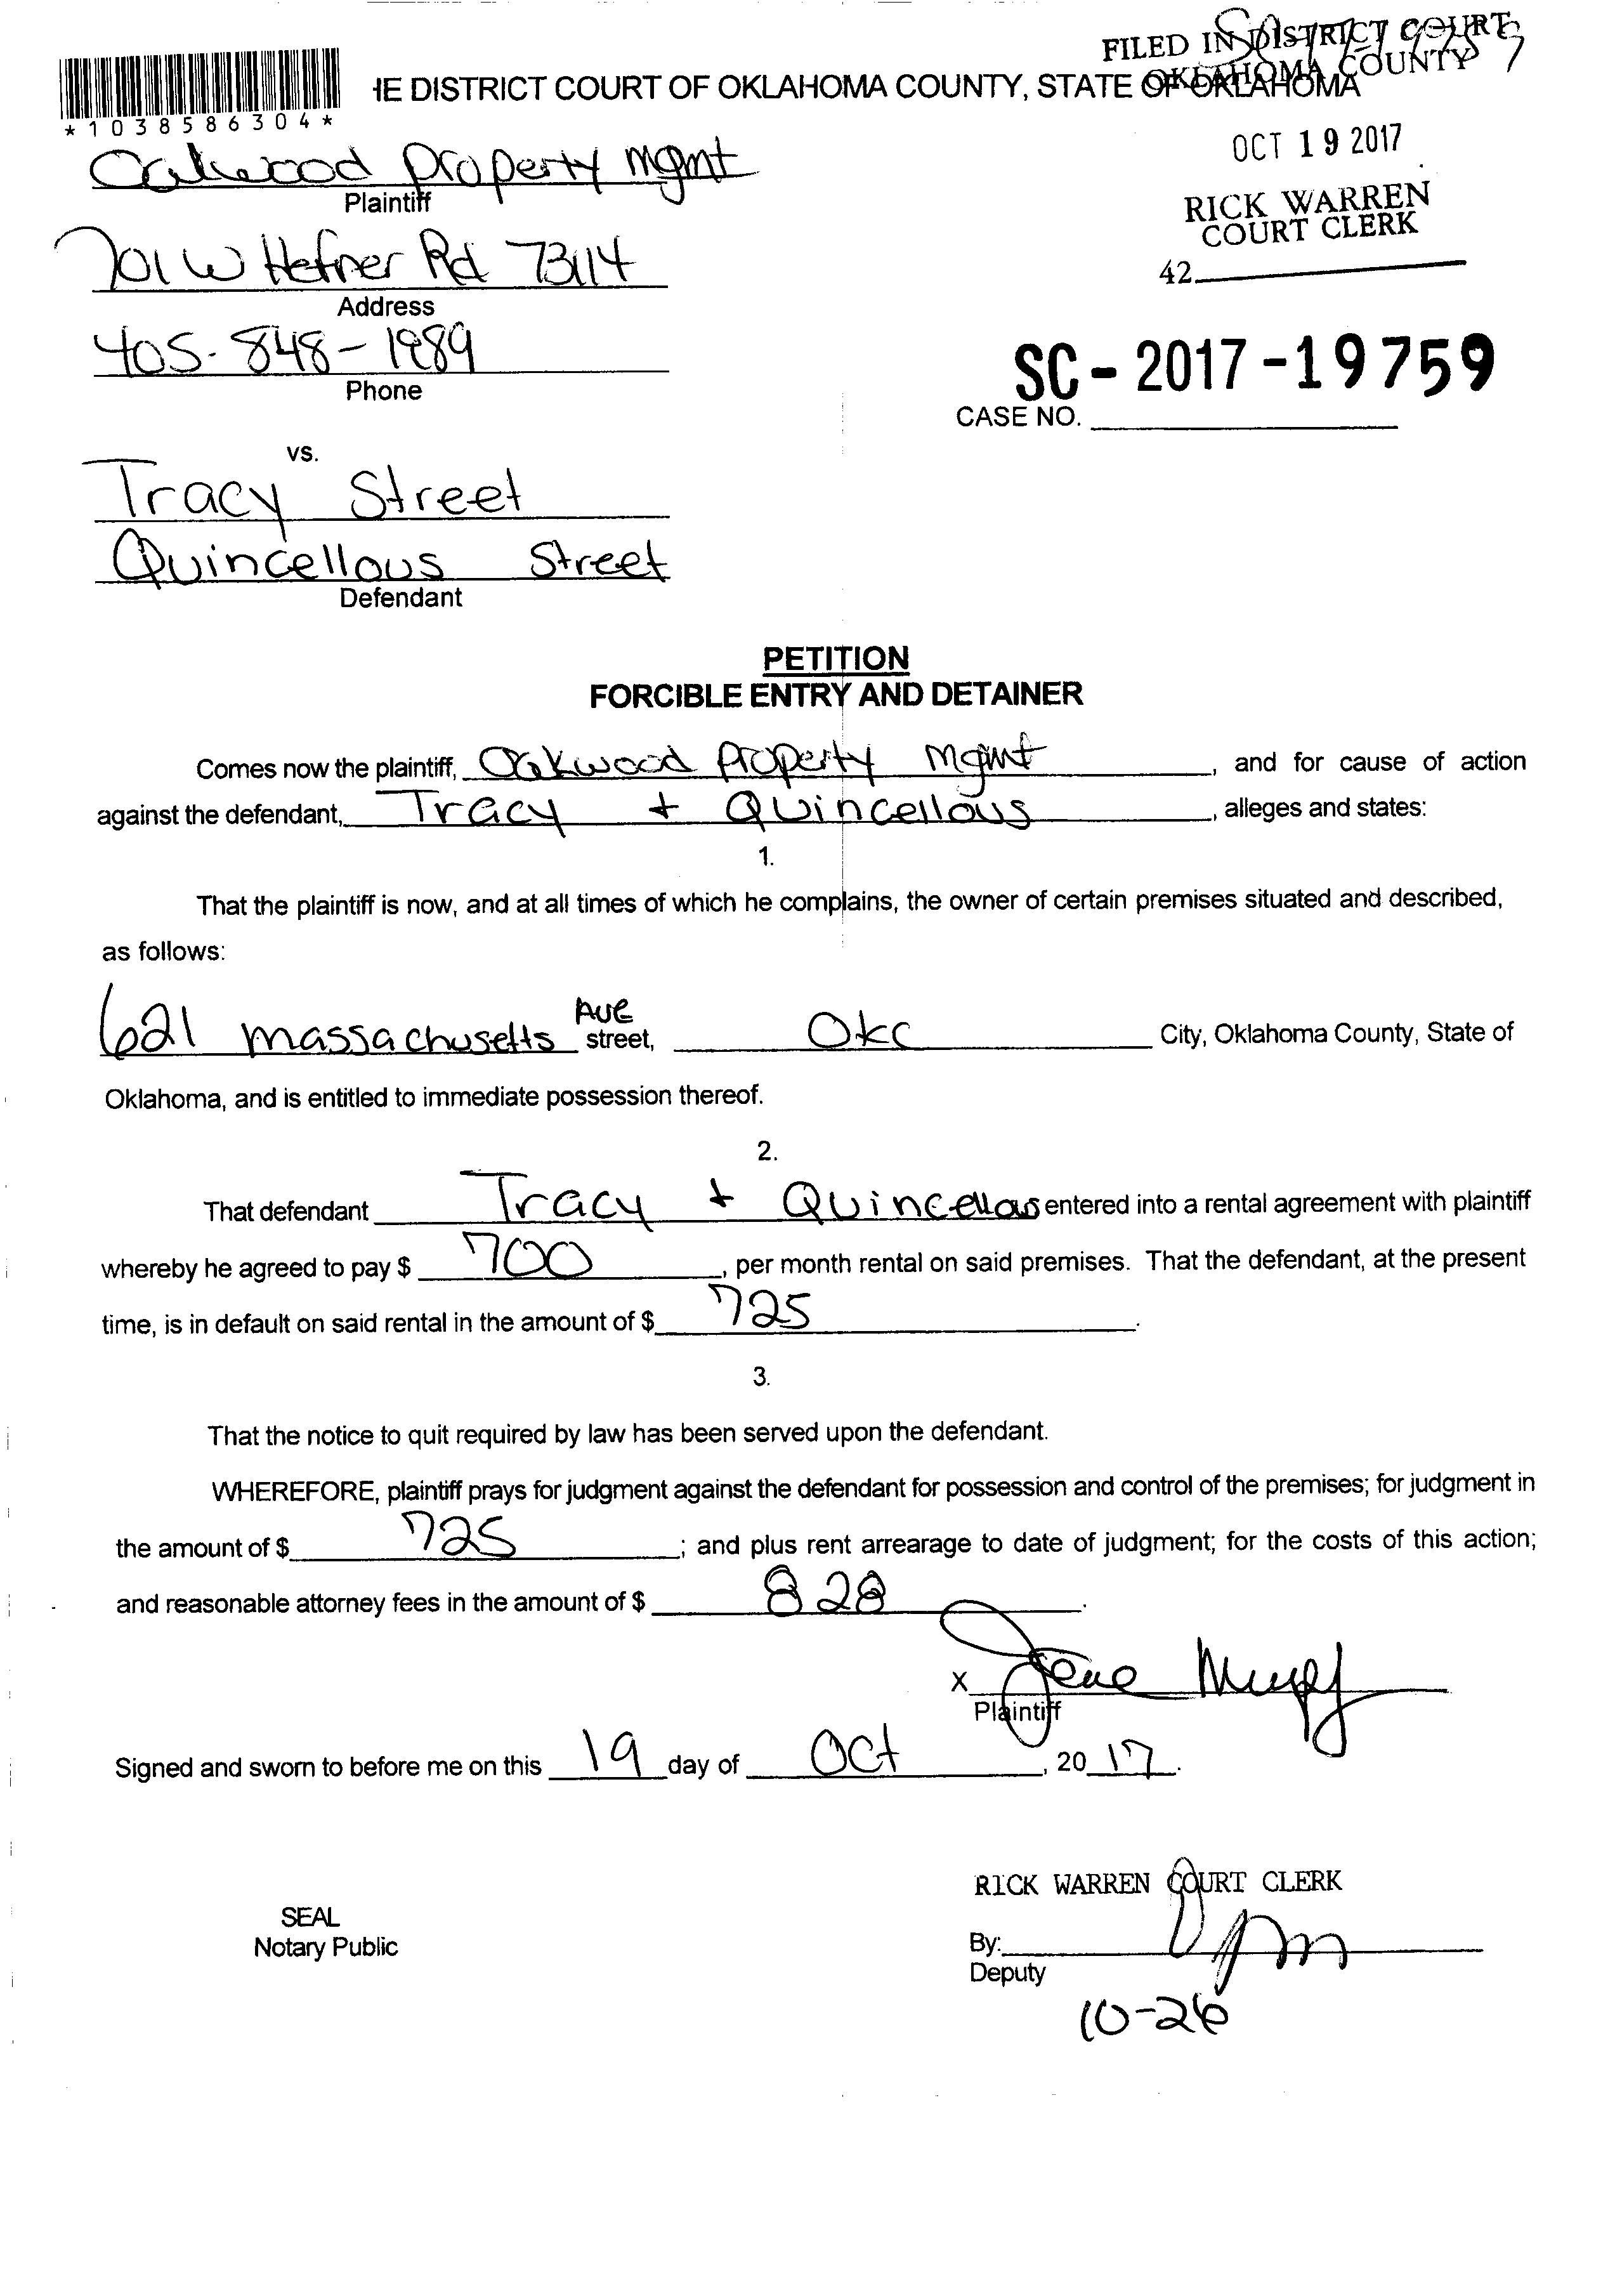 FILED IN DISTRICT COURT
OKLAHOMA COUNTY
*1038586304*
HE DISTRICT COURT OF OKLAHOMA COUNTY, STATE OF OKLAHOMA
OCT 19 2017
Oakwood Property Mgmt
Plaintiff
RICK WARREN
COURT CLERK
701 W Hefner Rd 73114
42
Address
405-848-1989
Phone
SC-2017-19759
CASE NO.
vs.
Tracy Street
Quincellous Street
Defendant
PETITION
FORCIBLE ENTRY AND DETAINER
Comes now the plaintiff, Oakwood Property Mgmt, and for cause of action
against the defendant, Tracy + Quincellous, alleges and states:
1.
That the plaintiff is now, and at all times of which he complains, the owner of certain premises situated and described,
as follows:
621 Massachusetts Ave street, Okc City, Oklahoma County, State of
Oklahoma, and is entitled to immediate possession thereof.
2.
That defendant Tracy + Quincellous entered into a rental agreement with plaintiff
whereby he agreed to pay $ 700, per month rental on said premises. That the defendant, at the present
time, is in default on said rental in the amount of $ 725.
3.
That the notice to quit required by law has been served upon the defendant.
WHEREFORE, plaintiff prays for judgment against the defendant for possession and control of the premises; for judgment in
the amount of $ 725; and plus rent arrearage to date of judgment; for the costs of this action;
and reasonable attorney fees in the amount of $ 828.
X
Plaintiff
Signed and sworn to before me on this 19 day of Oct, 2017.
RICK WARREN COURT CLERK
SEAL
Notary Public
By:
Deputy
10-26